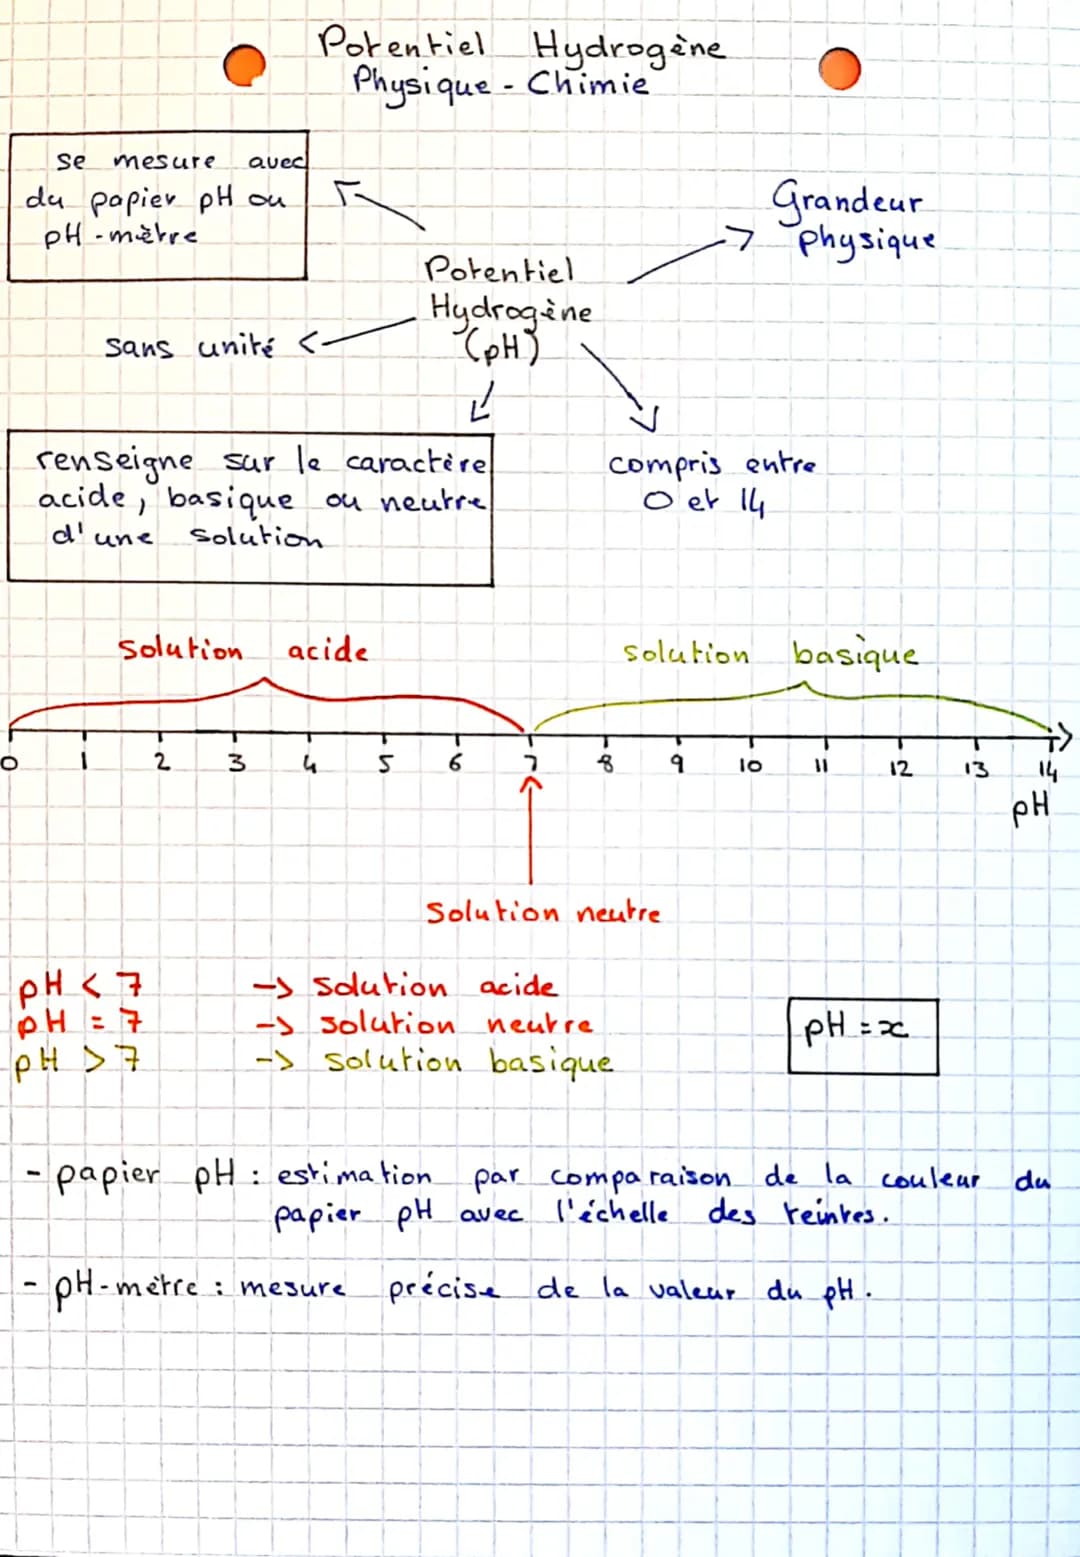 Potentiel Hydrogène
Physique - Chimie
se mesure avec
du papier pH ou
pH-mètre
Grandeur
physique
Potentiel
Hydrogène
(pH)
sans unité
renseigne sur le caractère
acide, basique ou neutre
d'une solution
compris entre
0 et 14
solution acide
solution basique
0 1 2 3 4 5 6 7 8 9 10 11 12 13 14
pH
Solution neutre
pH < 7 -> solution acide
pH = 7 -> solution neutre
pH > 7 -> solution basique
pH = x
- papier pH : estimation par comparaison de la couleur du
papier pH avec l'échelle des teintes.
- pH-mètre : mesure précise de la valeur du pH.